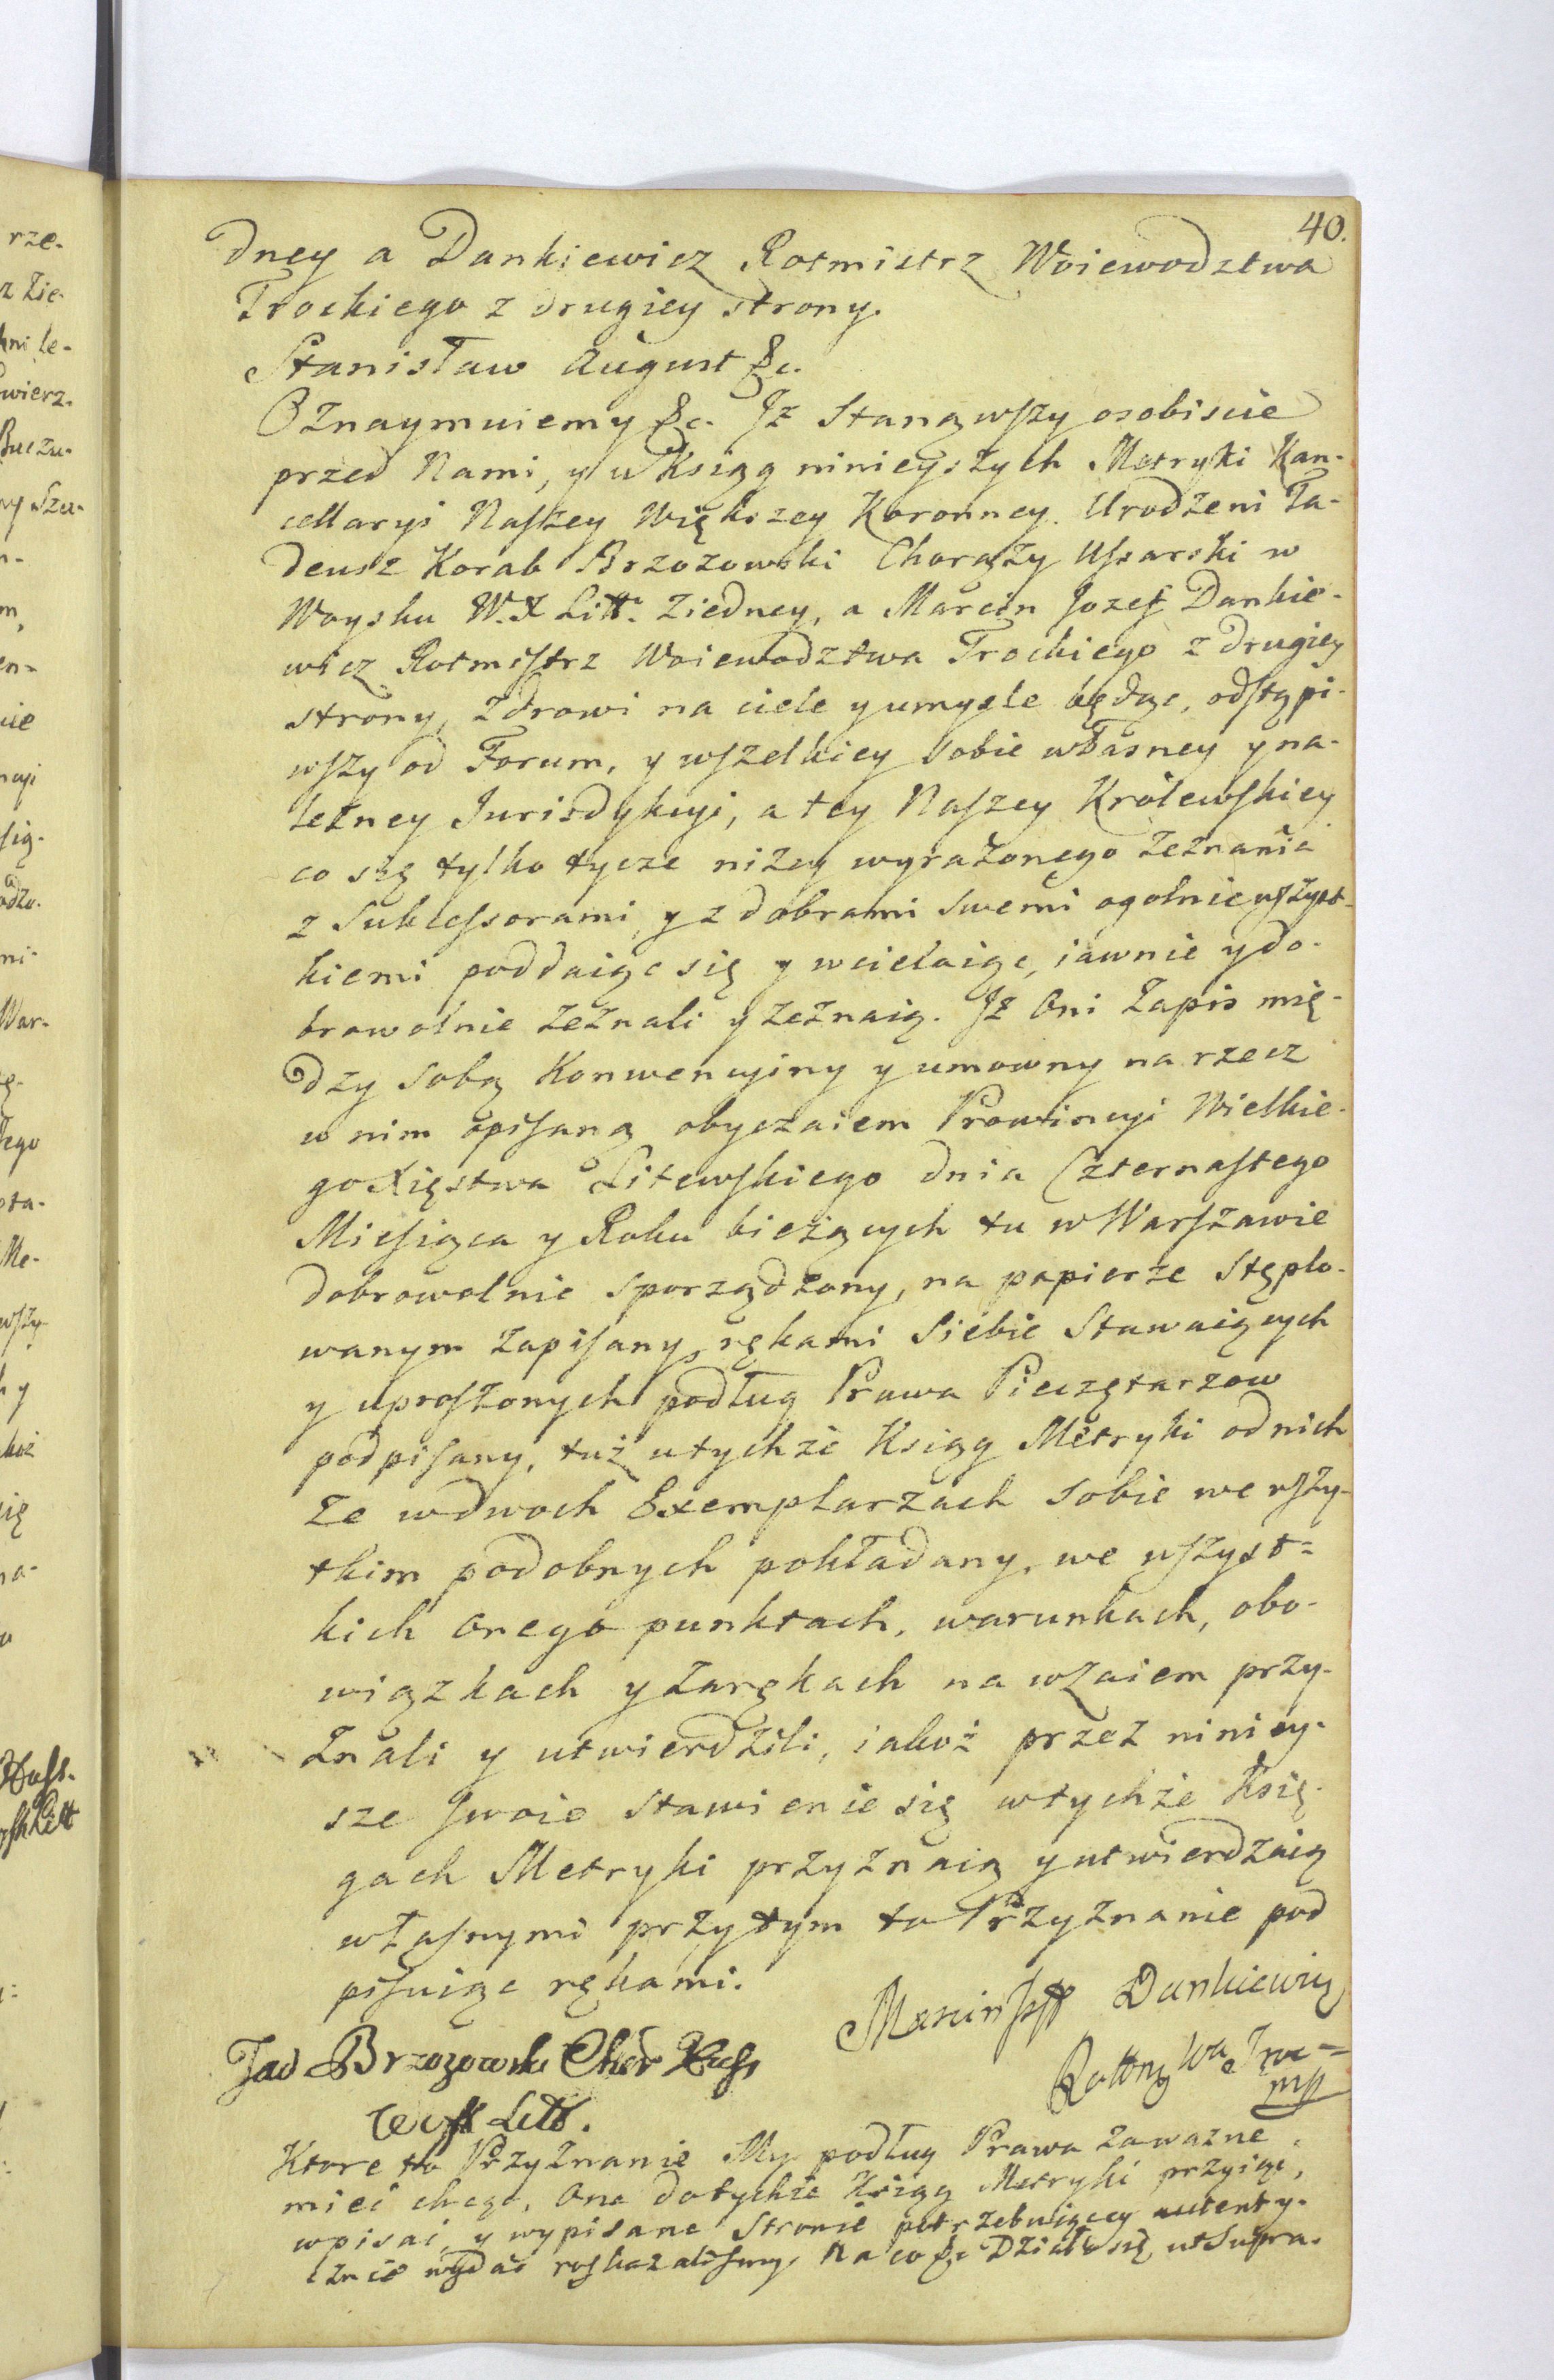 40.
dney a Dankiewicz Rotmistrz Woiewodztwa
Trockiego z drugiey strony.
Stanisław August &c.
Oznaymuiemy &c. Jż Stanąwszy osobiscie
przed Nami, y u Ksiąg ninieyszych Metryki Kan-
cellaryi Naszey Większey Koronney. Urodzeni Ta-
deusz Korab Brzozowski Chorąży Ussarski w
Woysku W. X Litt. Ziedney, a Marcin Jozef Dankie-
wicz Rotmistrz Woiewodztwa Trockiego z drugiey
strony, Zdrowi na ciele y umysle będąc, odstąpi-
wszy od Forum, y wszelkiey sobie własney y na-
leżney Jurisdykcyi, a tey Naszey Królewskiey
co się tylko tycze niżey wyrażonego zeznania
z Sukcessorami y z dobrami swemi ogolnie wszyst-
kiemi poddaiąc się y wcielaiąc, iawnie y do-
browolnie zeznali y zeznaią. Jż Oni Zapis mię-
dzy sobą Konwencyiny y umowny na rzecz
w nim opisaną obyczaiem Prowincyi Wielkie-
go Xięstwa Litewskiego dnia Czternastego
Miesiąca y Roku bieżących tu w Warszawie
dobrowolnie sporządzony, na papierze Stęplo-
wanym zapisany, rękami Siebie Stawaiących
y uproszonych podług Prawa Pieczętarzow
podpisany, tuż u tychże Ksiąg Metryki od nich
że w dwoch Exemplarzach sobie we wszy-
tkim podobnych pokładany, we wszyst=
kich onego punktach, warunkach, obo-
wiązkach y zarękach na wzaiem przy-
znali y utwierdzili, iakoż przez niniey-
sze swoie stawienie się w tychże Księ-
gach Metryki przyznaią y utwierdzaią
własnymi przytym to Przyznanie pod
pisuiąc rękami.
Marcin Jozff Dankiewicz
Tad Brzozowski Chor
Litt.
Ktore to Przyznanie My podług Prawa za wazne
mieć chcąc, One do tychże Ksiąg Metryki przyiąć,
wpisać, y wypisane Stronie potrzebuiącey autenty-
cznie wydać roskazalismy. Na co &c Działo się ut Supra.